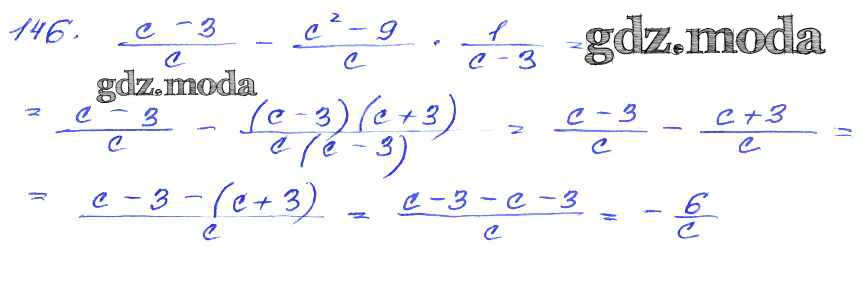 146. \frac{c-3}{c} - \frac{c^2-9}{c} \cdot \frac{1}{c-3} = gdz.moda
gdz.moda
= \frac{c-3}{c} - \frac{(c-3)(c+3)}{c(c-3)} = \frac{c-3}{c} - \frac{c+3}{c} =
= \frac{c-3-(c+3)}{c} = \frac{c-3-c-3}{c} = -\frac{6}{c}